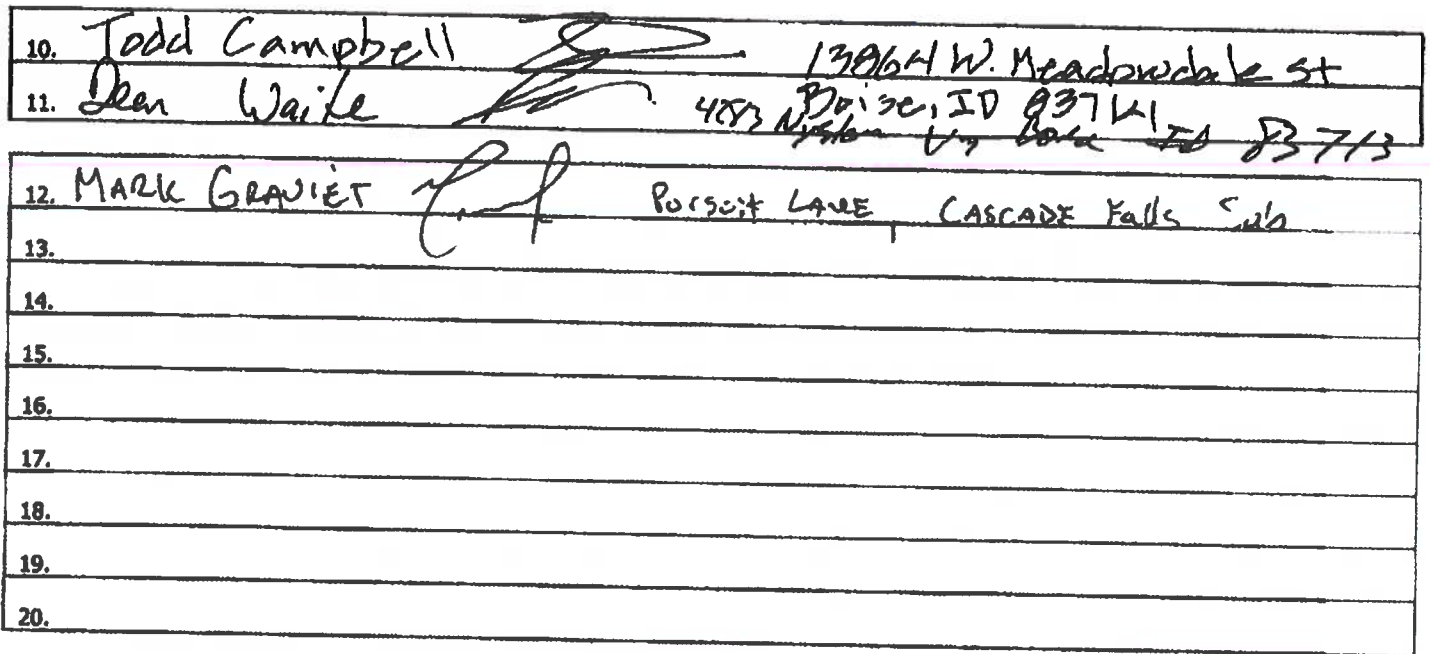 10. Todd Campbell 13864 W. Meadowdale st
Boise, ID
11. Dean Waite 4283 ID 83713
12. MARK GRAVIET Pursuit LANE, CASCADE Falls Sub
13.
14.
15.
16.
17.
18.
19.
20.